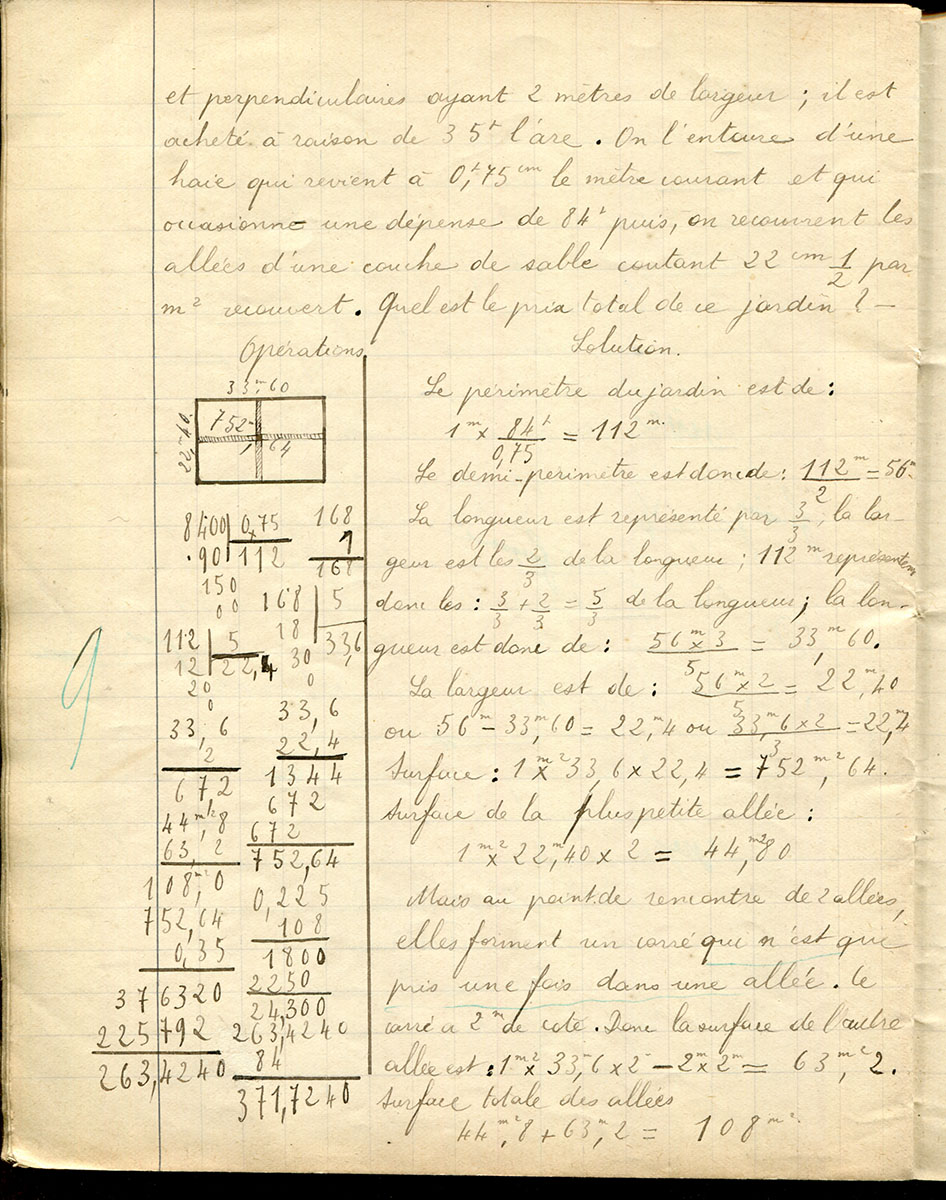 et perpendiculaires ayant 2 mètres de largeur ; il est
acheté à raison de 35f l'are . On l'entoure d'une
haie qui revient à 0f,75 cm le mètre courant et qui
occasionne une dépense de 84f puis, on recouvrent les
allées d'une couche de sable coutant 22 cm 1/2 par
m² recouvert. Quel est le prix total de ce jardin ? —
Opérations
33m,60
22m,40
752
1 64
8400 | 0,75
.90 | 112
150
00
168
1
168
168 | 5
18 | 33,6
30
0
112 | 5
12 | 22,4
20
0
33,6
2
672
44m²,8
63,2
108m²,0
752,64
0,35
376320
225792
263,4240
33,6
22,4
1344
672
672
752,64
0,225
108
1800
2250
24,300
263,4240
84
371,7240
9
Solution.
Le périmètre du jardin est de :
1m × 84f / 0,75 = 112m.
Le demi-perimètre est donc de : 112m / 2 = 56m.
La longueur est représenté par 3/3, la lar
geur est les 2/3 de la longueur ; 112m représentent
donc les : 3/3 + 2/3 = 5/3 de la longueur ; la lon-
gueur est donc de : 56m × 3 / 5 = 33m,60.
La largeur est de : 56m × 2 / 5 = 22m,40
ou 56m – 33m,60 = 22m,4 ou 33m,6 × 2 / 3 = 22m,4
Surface : 1m² × 33,6 × 22,4 = 752m²,64.
Surface de la plus petite allée :
1m² × 22,40 × 2 = 44m²,80
Mais au point de rencontre de 2 allées,
elles forment un carré qui n'est que
pris une fois dans une allée. Ce
carré a 2m de coté. Donc la surface de l'autre
allée est : 1m² × 33,6 × 2 – 2m × 2m = 63m²,2.
Surface totale des allées
44m²,8 + 63m²,2 = 108m².